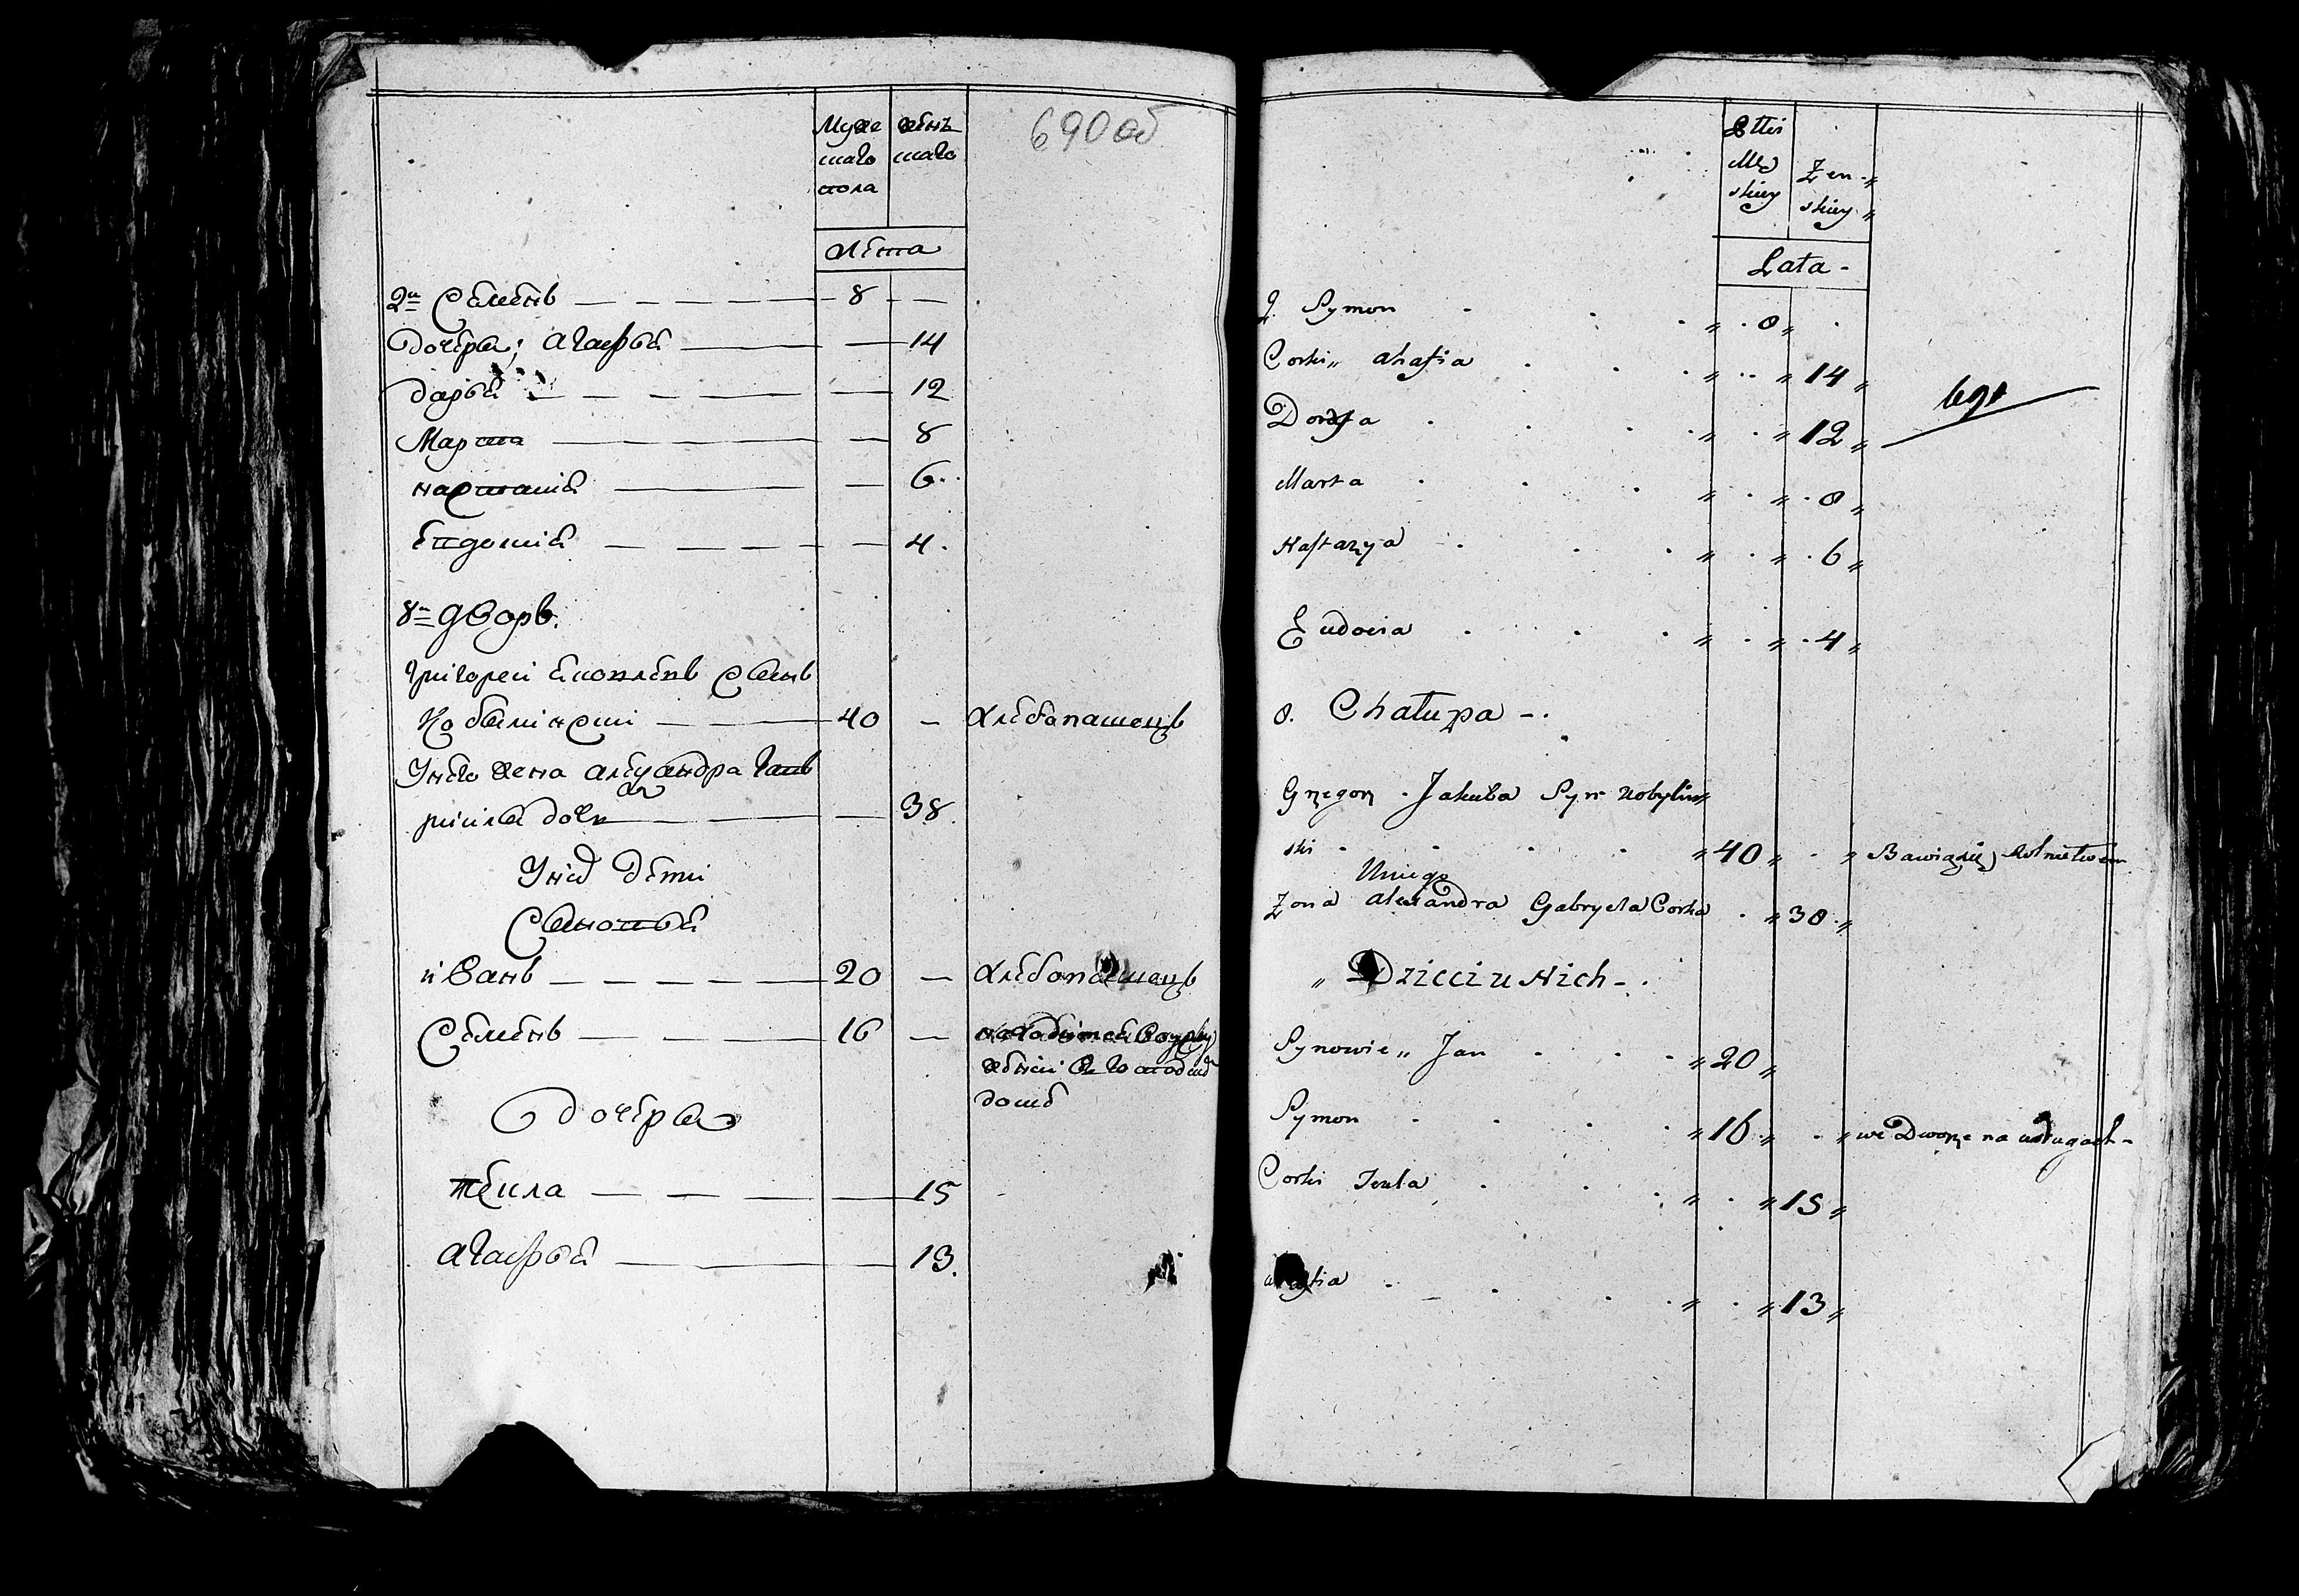 Муже женъ
скаго скаго
пола
690 об
лѣта
2й Семенъ — 8 —
дочеры; Агафья — 14
дарья — 12
Марта — 8
настасия — 6
Евдокия — 4
8й дворъ.
Григорей Яковлевъ Сынъ
Кобылинский — 40 — хлебопашецъ
У него жена Александра Гав
рилова дочь — 38
У них дети
Сыновья
иванъ — 20 — хлебопашецъ
Семенъ — 16 —
дочеры
текла — 15
Агафья — 13.
Płci
Mę Żen
skiey skiey
Lata -
2. Symon 8
Corki Ahafia 14
Dorota 12
691
Marta 8
Nastazya 6
Eudocia 4
8. Chałupa -.
Grzegorz Jakuba Syn Kobylin
ski 40 Bawiąsię Rolnictwem
Uniego
Żona Alexandra Gabryela Corka 38
Dzieci u Nich -.
Synowie Jan 20
Symon 16 we Dworze na usługach -
Corki Tekla 15
ahafia 13